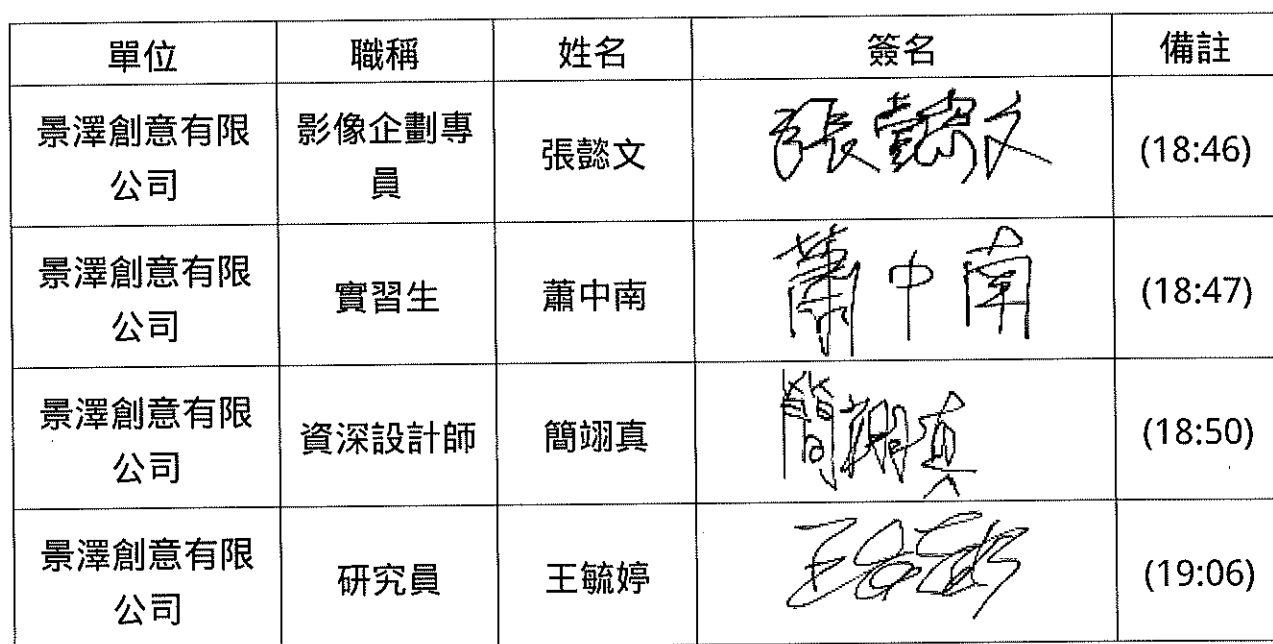 單位 職稱 姓名 簽名 備註
景澤創意有限公司 影像企劃專員 張懿文 張懿文 (18:46)
景澤創意有限公司 實習生 蕭中南 蕭中南 (18:47)
景澤創意有限公司 資深設計師 簡翊真 簡翊真 (18:50)
景澤創意有限公司 研究員 王毓婷 (19:06)